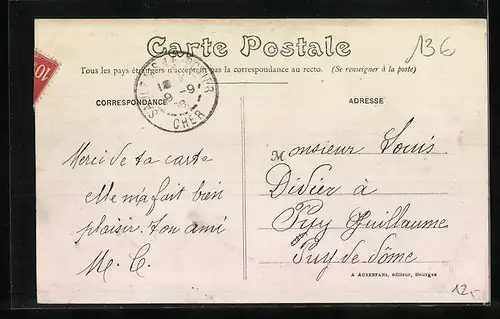 Carte Postale
136
Tous les pays étrangers n'acceptent pas la correspondance au recto. (Se renseigner à la poste)
CORRESPONDANCE
ADRESSE
CHER
10
Merci de ta carte
elle m'a fait bien
plaisir. Ton ami
M. C.
Monsieur Louis
Didier à
Puy Guillaume
Puy de Dôme
A AUXENFANS, éditeur, Bourges
12,-